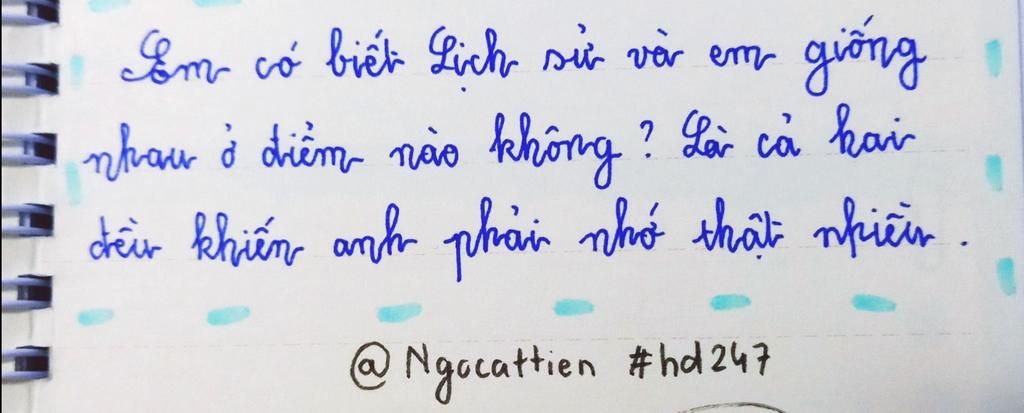 Em có biết Lịch sử và em giống
nhau ở điểm nào không? Là cả hai
đều khiến anh phải nhớ thật nhiều.
@Ngocattien #hd247